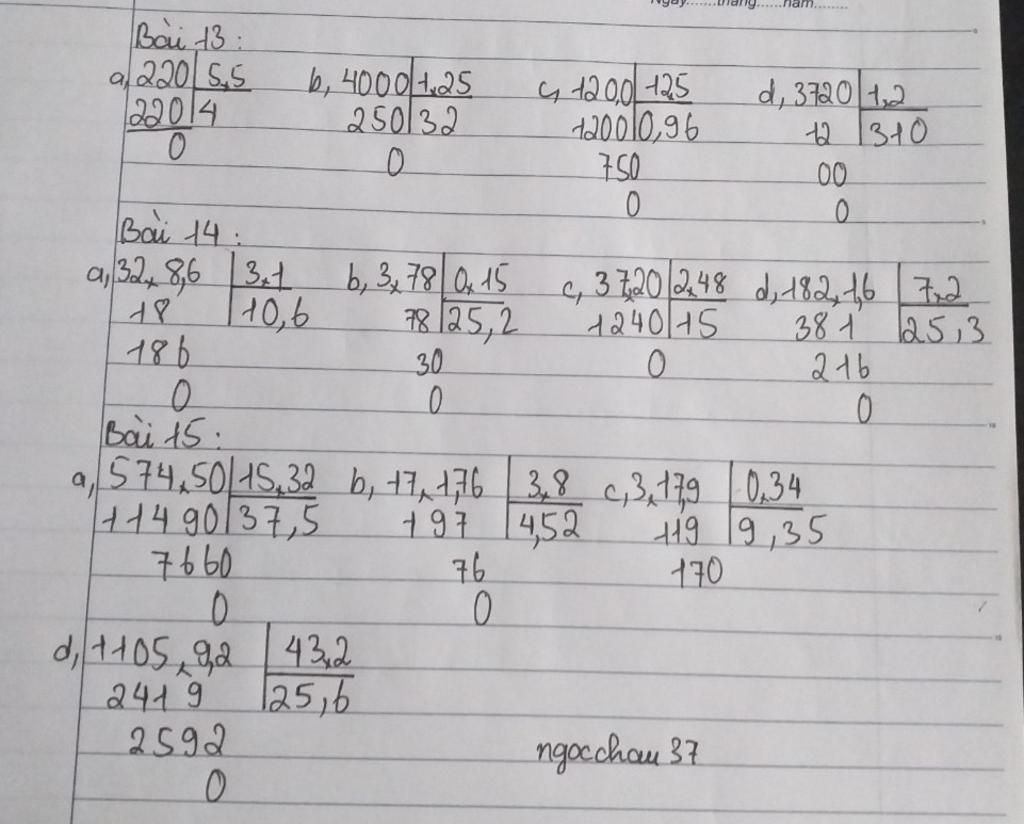 Ngày.......tháng......năm........
Bài 13 :
a, 220 5,5 b, 4000 1,25 c, 120,0 125 d, 3720 1,2
220 4 250 32 1200 0,96 12 310
0 0 750 00
0 0
Bài 14 :
a, 32,8,6 3,1 b, 3,78 0,15 c, 37,20 2,48 d, 182,1,6 7,2
18 10,6 78 25,2 1240 15 381 25,3
186 30 0 216
0 0 0
Bài 15 :
a, 574,50 15,32 b, 17,1,76 3,8 c, 3,17,9 0,34
11490 37,5 197 4,52 119 9,35
7660 76 170
0 0
d, 1105,9,2 43,2
2419 25,6
2592 ngocchau 37
0